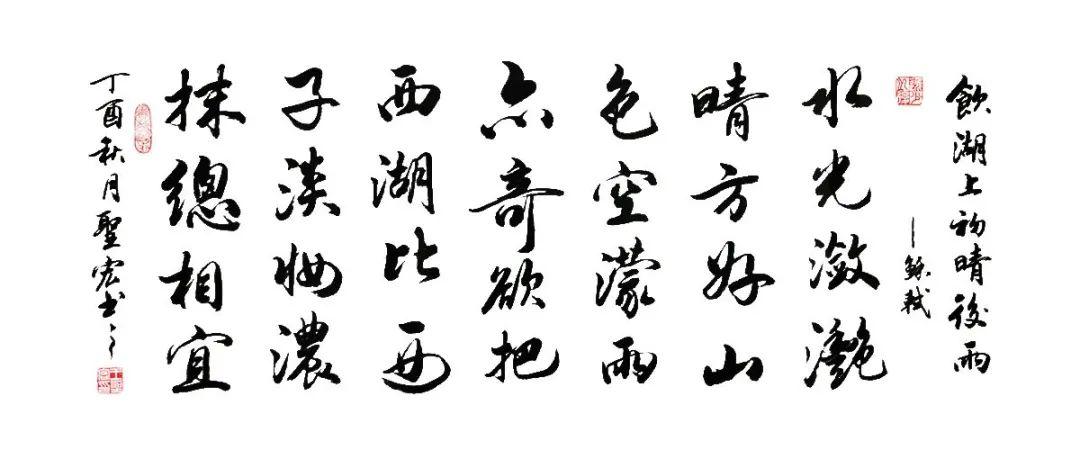 飲湖上初晴後雨
—蘇軾
水光瀲灩
晴方好山
色空濛雨
亦奇欲把
西湖比西
子淡妝濃
抹總相宜
丁酉秋月聖宏书